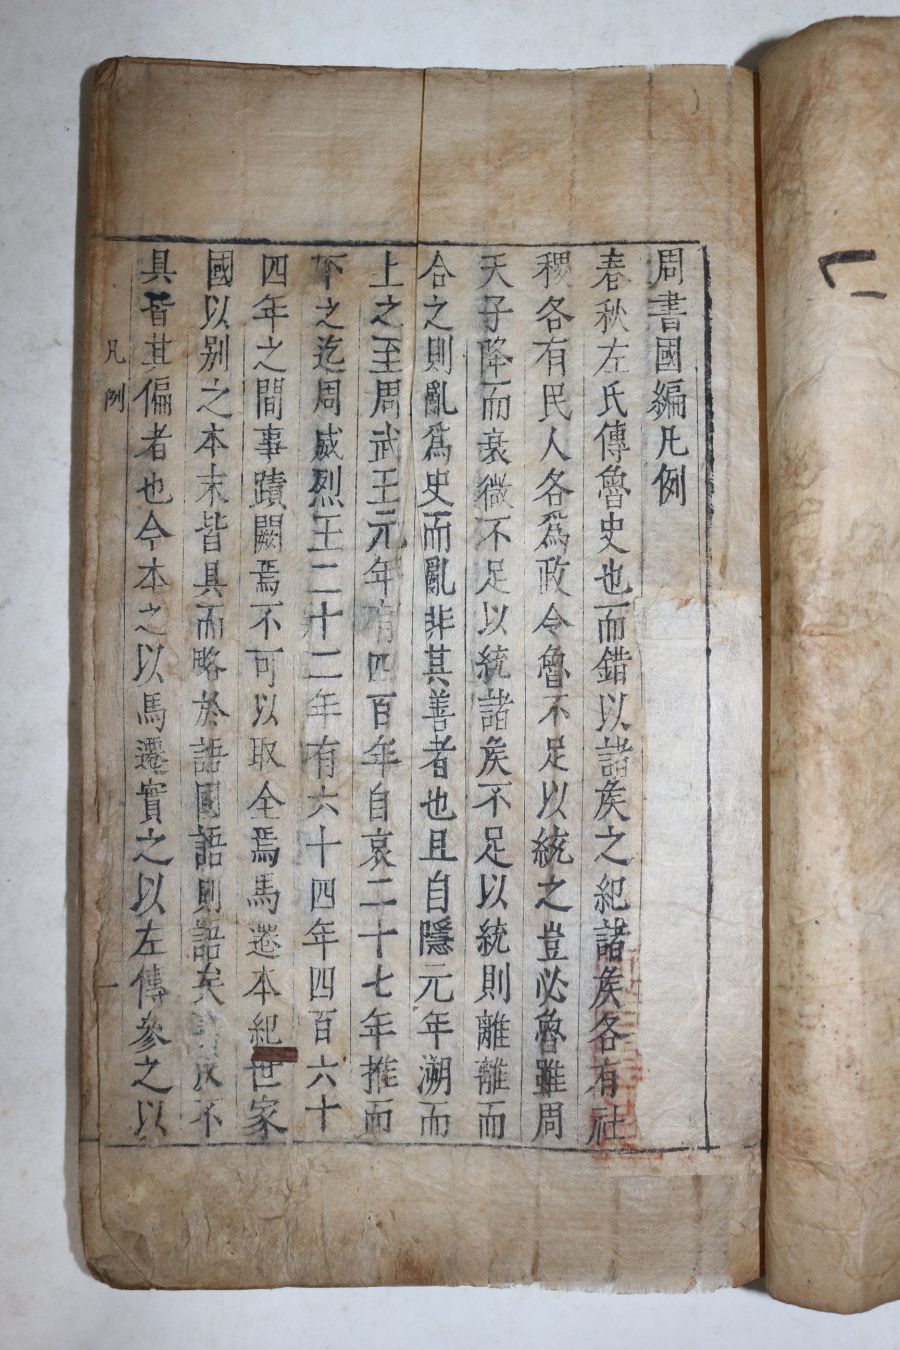 周書國編凡例
春秋左氏傳魯史也而錯以諸矦之紀諸矦各有社
稷各有民人各爲政令魯不足以統之豈必魯雖周
天子降而衰微不足以統諸矦不足以統則離離而
合之則亂爲史而亂非其善者也且自隱元年溯而
上之至周武王元年有四百年自哀二十七年推而
下之迄周威烈王二十二年有六十四年四百六十
四年之間事蹟闕焉不可以取全焉馬遷本紀世家
國以别之本末皆具而略於語國語則語矣不
具皆其偏者也今本之以馬遷實之以左傳參之以
凡例
一